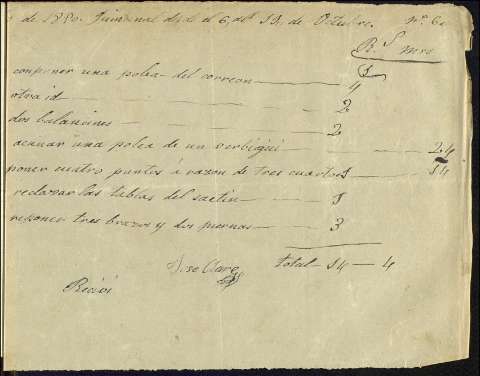 de 1820. Quincenal desde el 6, al 19, de Octubre. Nº. 6.
R.s mrs
componer una polea del correon 4
otra id 2
dos balancines 2
acuñar una polea de un berbiquí 24
poner cuatro puntos á razon de tres cuartos 1 14
reclavar las tablas del saetin 1
reponer tres brazos y dos piernas 3
Total 14 4
Jose Claro
Recivi